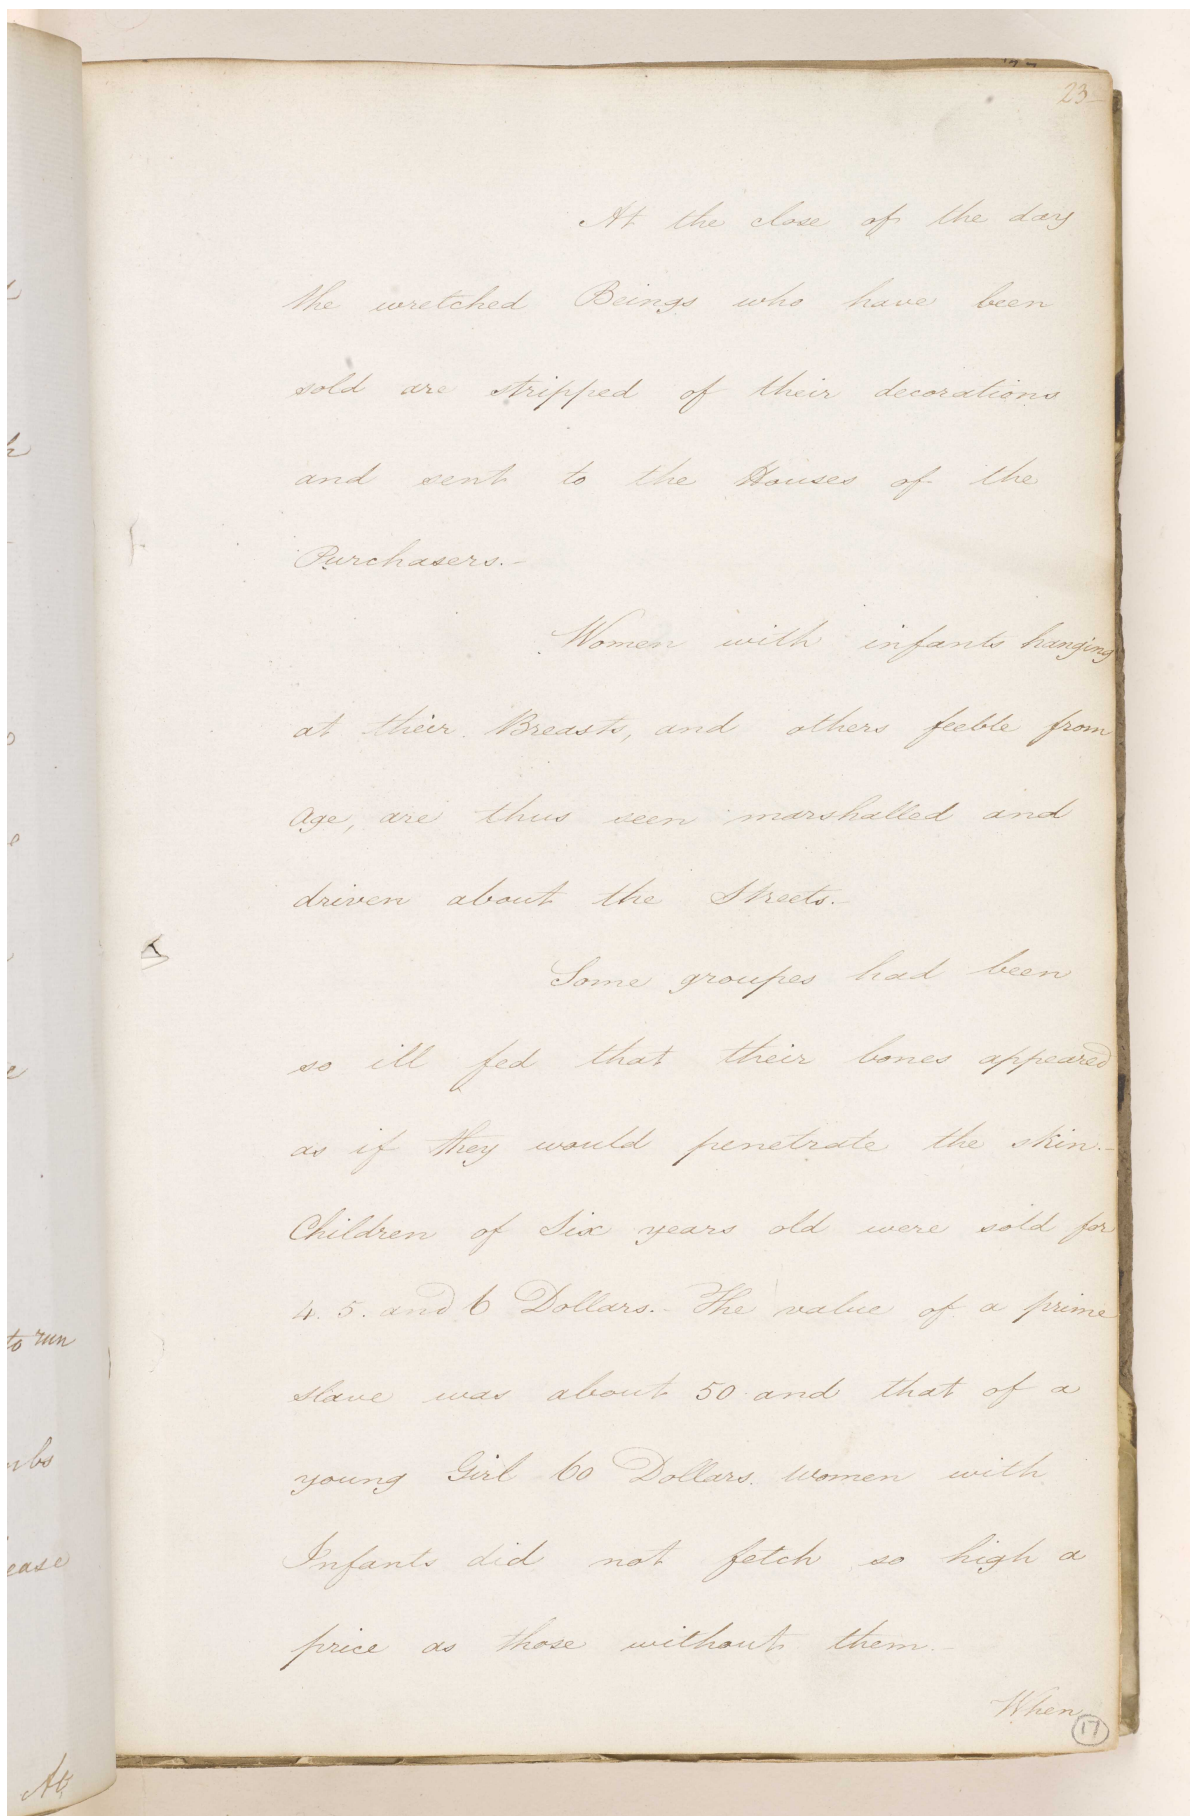 23
At the close of the day
the wretched Beings who have been
sold are stripped of their decorations
and sent to the Houses of the
Purchasers.-
Women with infants hanging
at their Breasts, and others feeble from
Age, are thus seen marshalled and
driven about the Streets.-
Some groupes had been
so ill fed that their bones appeared
as if they would penetrate the skin.-
Children of Six years old were sold for
4. 5. and 6 Dollars.- The value of a prime
slave was about 50 and that of a
young Girl 60 Dollars. women with
Infants did not fetch so high a
price as those without them.-
When
17
to run
ease
At